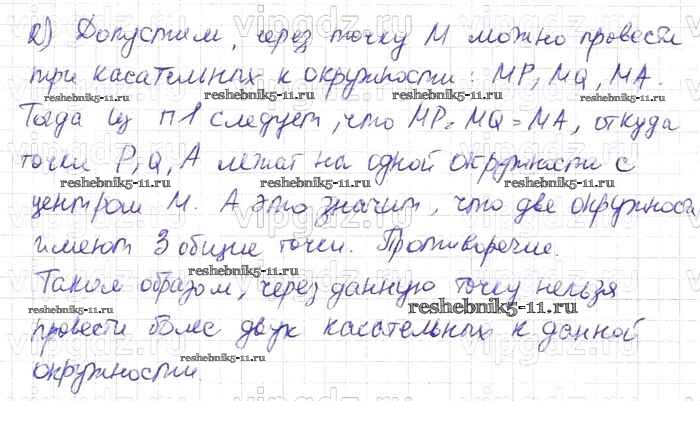 2) Допустим, через точку М можно провести
три касательных к окружности: МР, MQ, МА.
Тогда из п1 следует, что МР = MQ = МА, откуда
точки P, Q, A лежат на одной окружности с
центром М. А это значит, что две окружност
имеют 3 общие точки. Противоречие.
Таким образом, через данную точку нельзя
провести более двух касательных к данной
окружности.
reshebnik5-11.ru
reshebnik5-11.ru
reshebnik5-11.ru
reshebnik5-11.ru
reshebnik5-11.ru
reshebnik5-11.ru
reshebnik5-11.ru
reshebnik5-11.ru